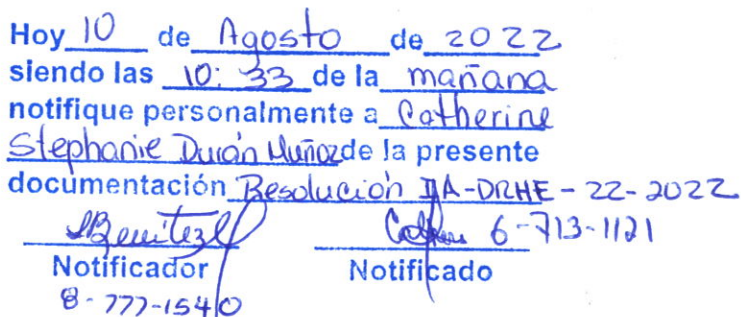 Hoy 10 de Agosto de 2022
siendo las 10:33 de la mañana
notifique personalmente a Catherine
Stephanie Durán Muñoz de la presente
documentación Resolución IA-DRHE-22-2022
Benítez 6-713-1121
Notificador Notificado
8-777-1540